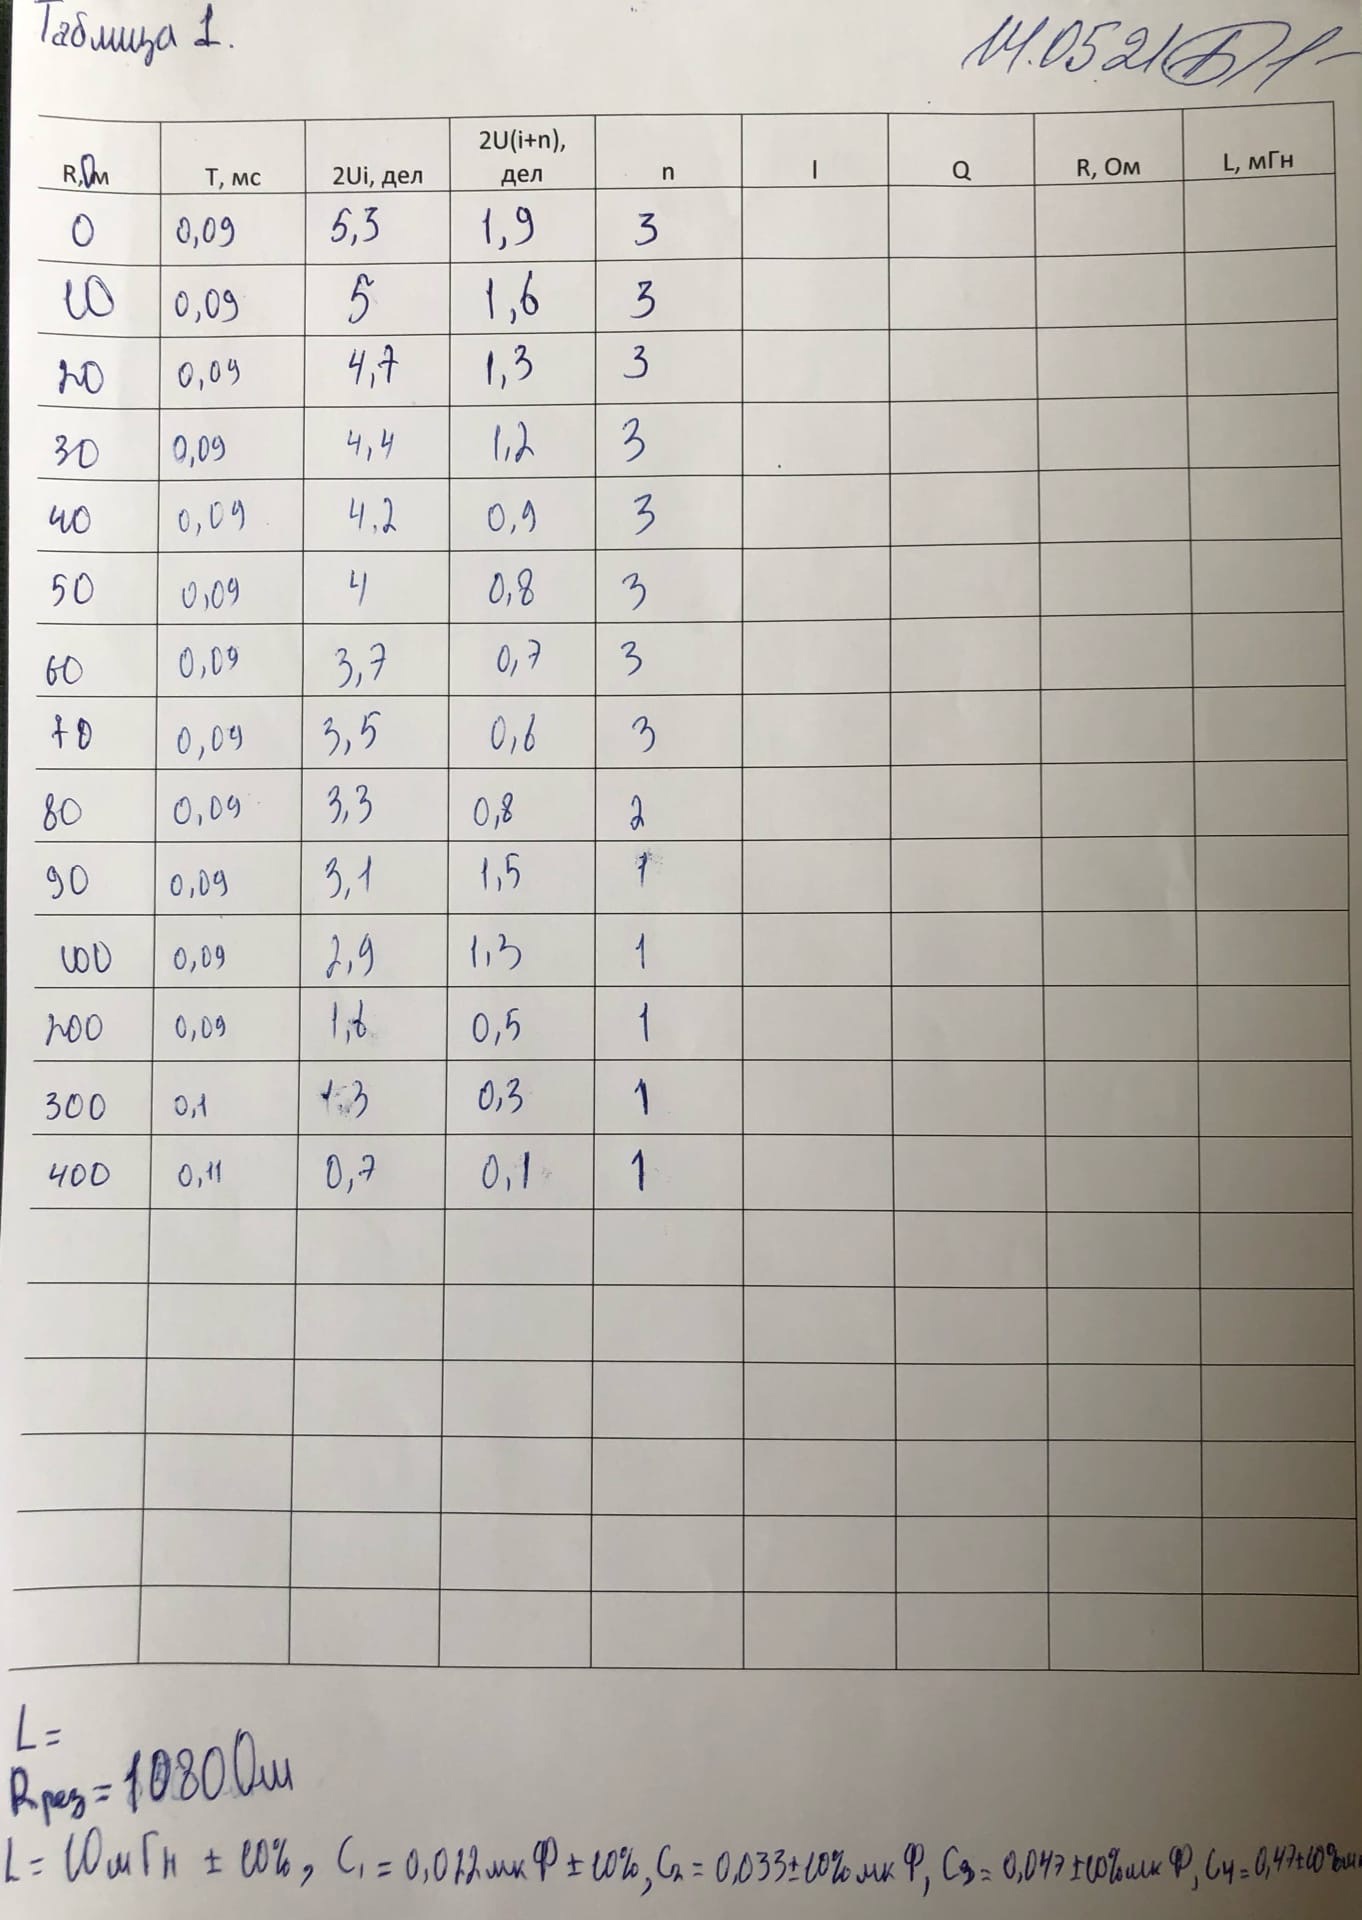 Таблица 1.
14.05.21
R,Ом T, мс 2Ui, дел 2U(i+n), дел n l Q R, Ом L, мГн
0 0,09 5,3 1,9 3
10 0,09 5 1,6 3
20 0,09 4,7 1,3 3
30 0,09 4,4 1,2 3
40 0,09 4.2 0,9 3
50 0,09 4 0,8 3
60 0,09 3,7 0,7 3
70 0,09 3,5 0,6 3
80 0,09 3,3 0,8 2
90 0,09 3,1 1,5 1
100 0,09 2,9 1.3 1
200 0,09 0,5 1
300 0,1 1.3 0,3 1
400 0,11 0,7 0,1 1
L=
Rрез = 1080 Ом
L = 10 мГн ± 10%, C1 = 0,022 мкФ ± 10%, C2 = 0.033 ± 10% мкФ, C3 = 0,047 ± 10% мкФ, C4 = 0,47 ± 10%